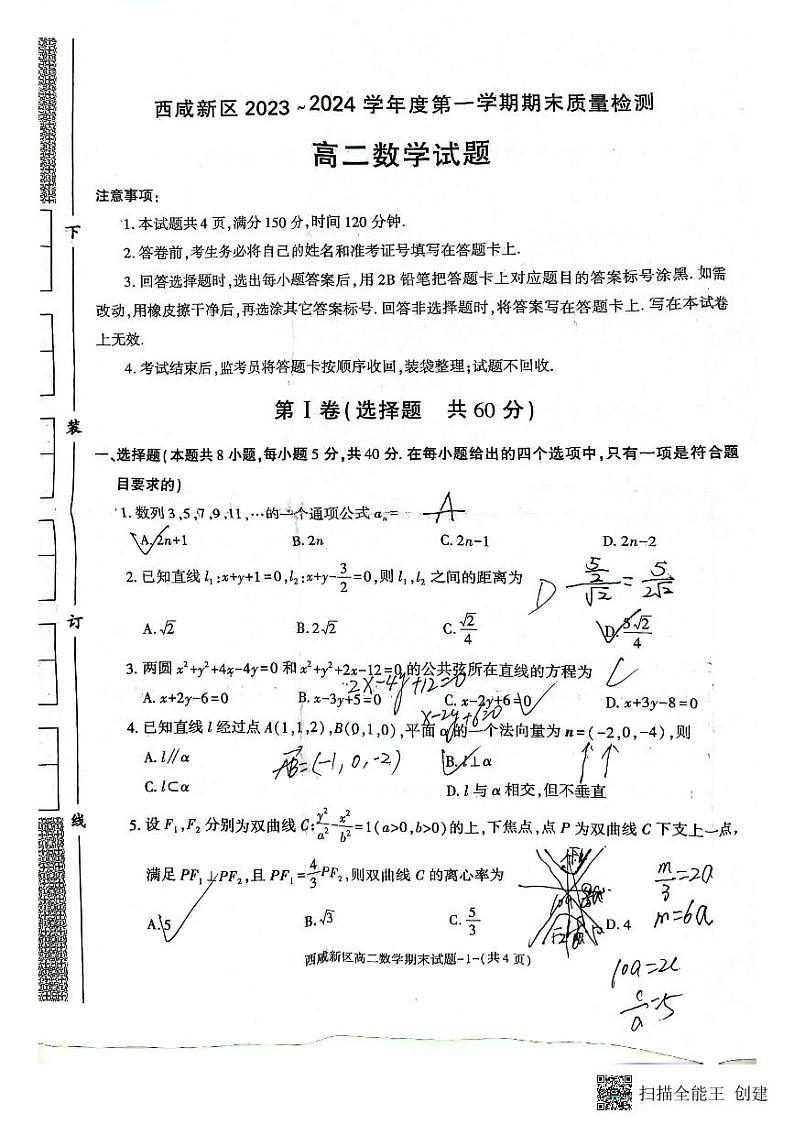 西咸新区2023~2024学年度第一学期期末质量检测
高二数学试题
注意事项:
1.本试题共4页,满分150分,时间120分钟.
2.答卷前,考生务必将自己的姓名和准考证号填写在答题卡上.
3.回答选择题时,选出每小题答案后,用2B铅笔把答题卡上对应题目的答案标号涂黑.如需
改动,用橡皮擦干净后,再选涂其它答案标号.回答非选择题时,将答案写在答题卡上.写在本试卷
上无效.
4.考试结束后,监考员将答题卡按顺序收回,装袋整理;试题不回收.
第Ⅰ卷(选择题 共60分)
一、选择题(本题共8小题,每小题5分,共40分.在每小题给出的四个选项中,只有一项是符合题
目要求的)
1.数列3,5,7,9,11,…的一个通项公式aₙ= A
A.2n+1 B.2n C.2n-1 D.2n-2
2.已知直线l₁:x+y+1=0,l₂:x+y-3/2=0,则l₁,l₂之间的距离为 D (5/2)/√2=5/2√2
A.√2 B.2√2 C.√2/4 D.5√2/4
3.两圆x²+y²+4x-4y=0和x²+y²+2x-12=0的公共弦所在直线的方程为 C
2x-4y+12=0
A.x+2y-6=0 B.x-3y+5=0 C.x-2y+6=0 D.x+3y-8=0
x-2y+6=0
4.已知直线l经过点A(1,1,2),B(0,1,0),平面α的一个法向量为n=(-2,0,-4),则
A.l∥α AB=(-1,0,-2) B.l⊥α
C.l⊂α D.l与α相交,但不垂直
5.设F₁,F₂分别为双曲线C:y²/a²-x²/b²=1(a>0,b>0)的上,下焦点,点P为双曲线C下支上一点,
满足PF₁⊥PF₂,且PF₁=4/3PF₂,则双曲线C的离心率为
m/3=2a
m=6a
A.5 B.√3 C.5/3 D.4
10a=2c
c/a=5
西咸新区高二数学期末试题-1-(共4页)
下
装
订
线
扫描全能王 创建